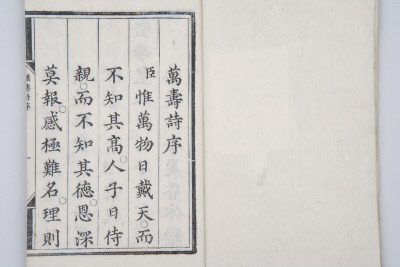 萬壽詩序
臣惟萬物日戴天而
不知其高人子日侍
親而不知其德恩深
莫報感極難名理則